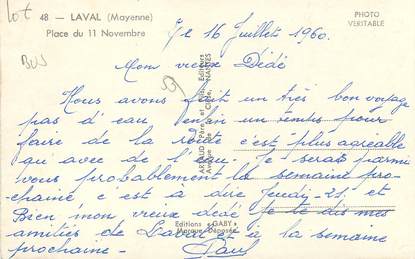 Lot
48 — LAVAL (Mayenne)
Place du 11 Novembre
PHOTO
VERITABLE
BUS
le 16 Juillet 1960.
Mon vieux Dédé
Nous avons fait un très bon voyage
pas d'eau enfin un temps pour
faire de la route c'est plus agréable
qui avec de l'eau. Je serais parmi
vous probablement la semaine pro-
chaine c'est à dire Jeudi-21 et
Bien mon vieux dédé je te dis mes
amitiés de Laval et à la semaine
prochaine - Paul
Editions "GABY"
Marque Déposée
ARTAUD Père et Fils, Editeurs
NANTES